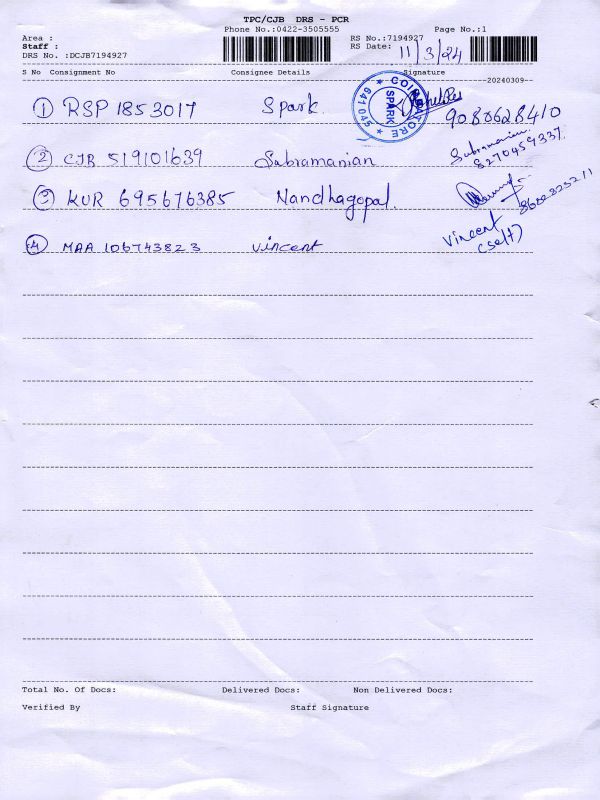 TPC/CJB DRS - PCR
Phone No.:0422-3505555 Page No.:1
Area : RS No.:7194927
Staff : RS Date: 11/3/24
DRS No. :DCJB7194927
S No Consignment No Consignee Details Signature
20240309
1 RSP 1853017 Spark COIMBATORE 641045 SPARK 9080628410
2 CJB 519101639 Subramanian Subramanian 8270459337
3 KUR 695676385 Nandhagopal.
4 MAA 106743823 Vincent Vincent (self)
Total No. Of Docs: Delivered Docs: Non Delivered Docs:
Verified By Staff Signature